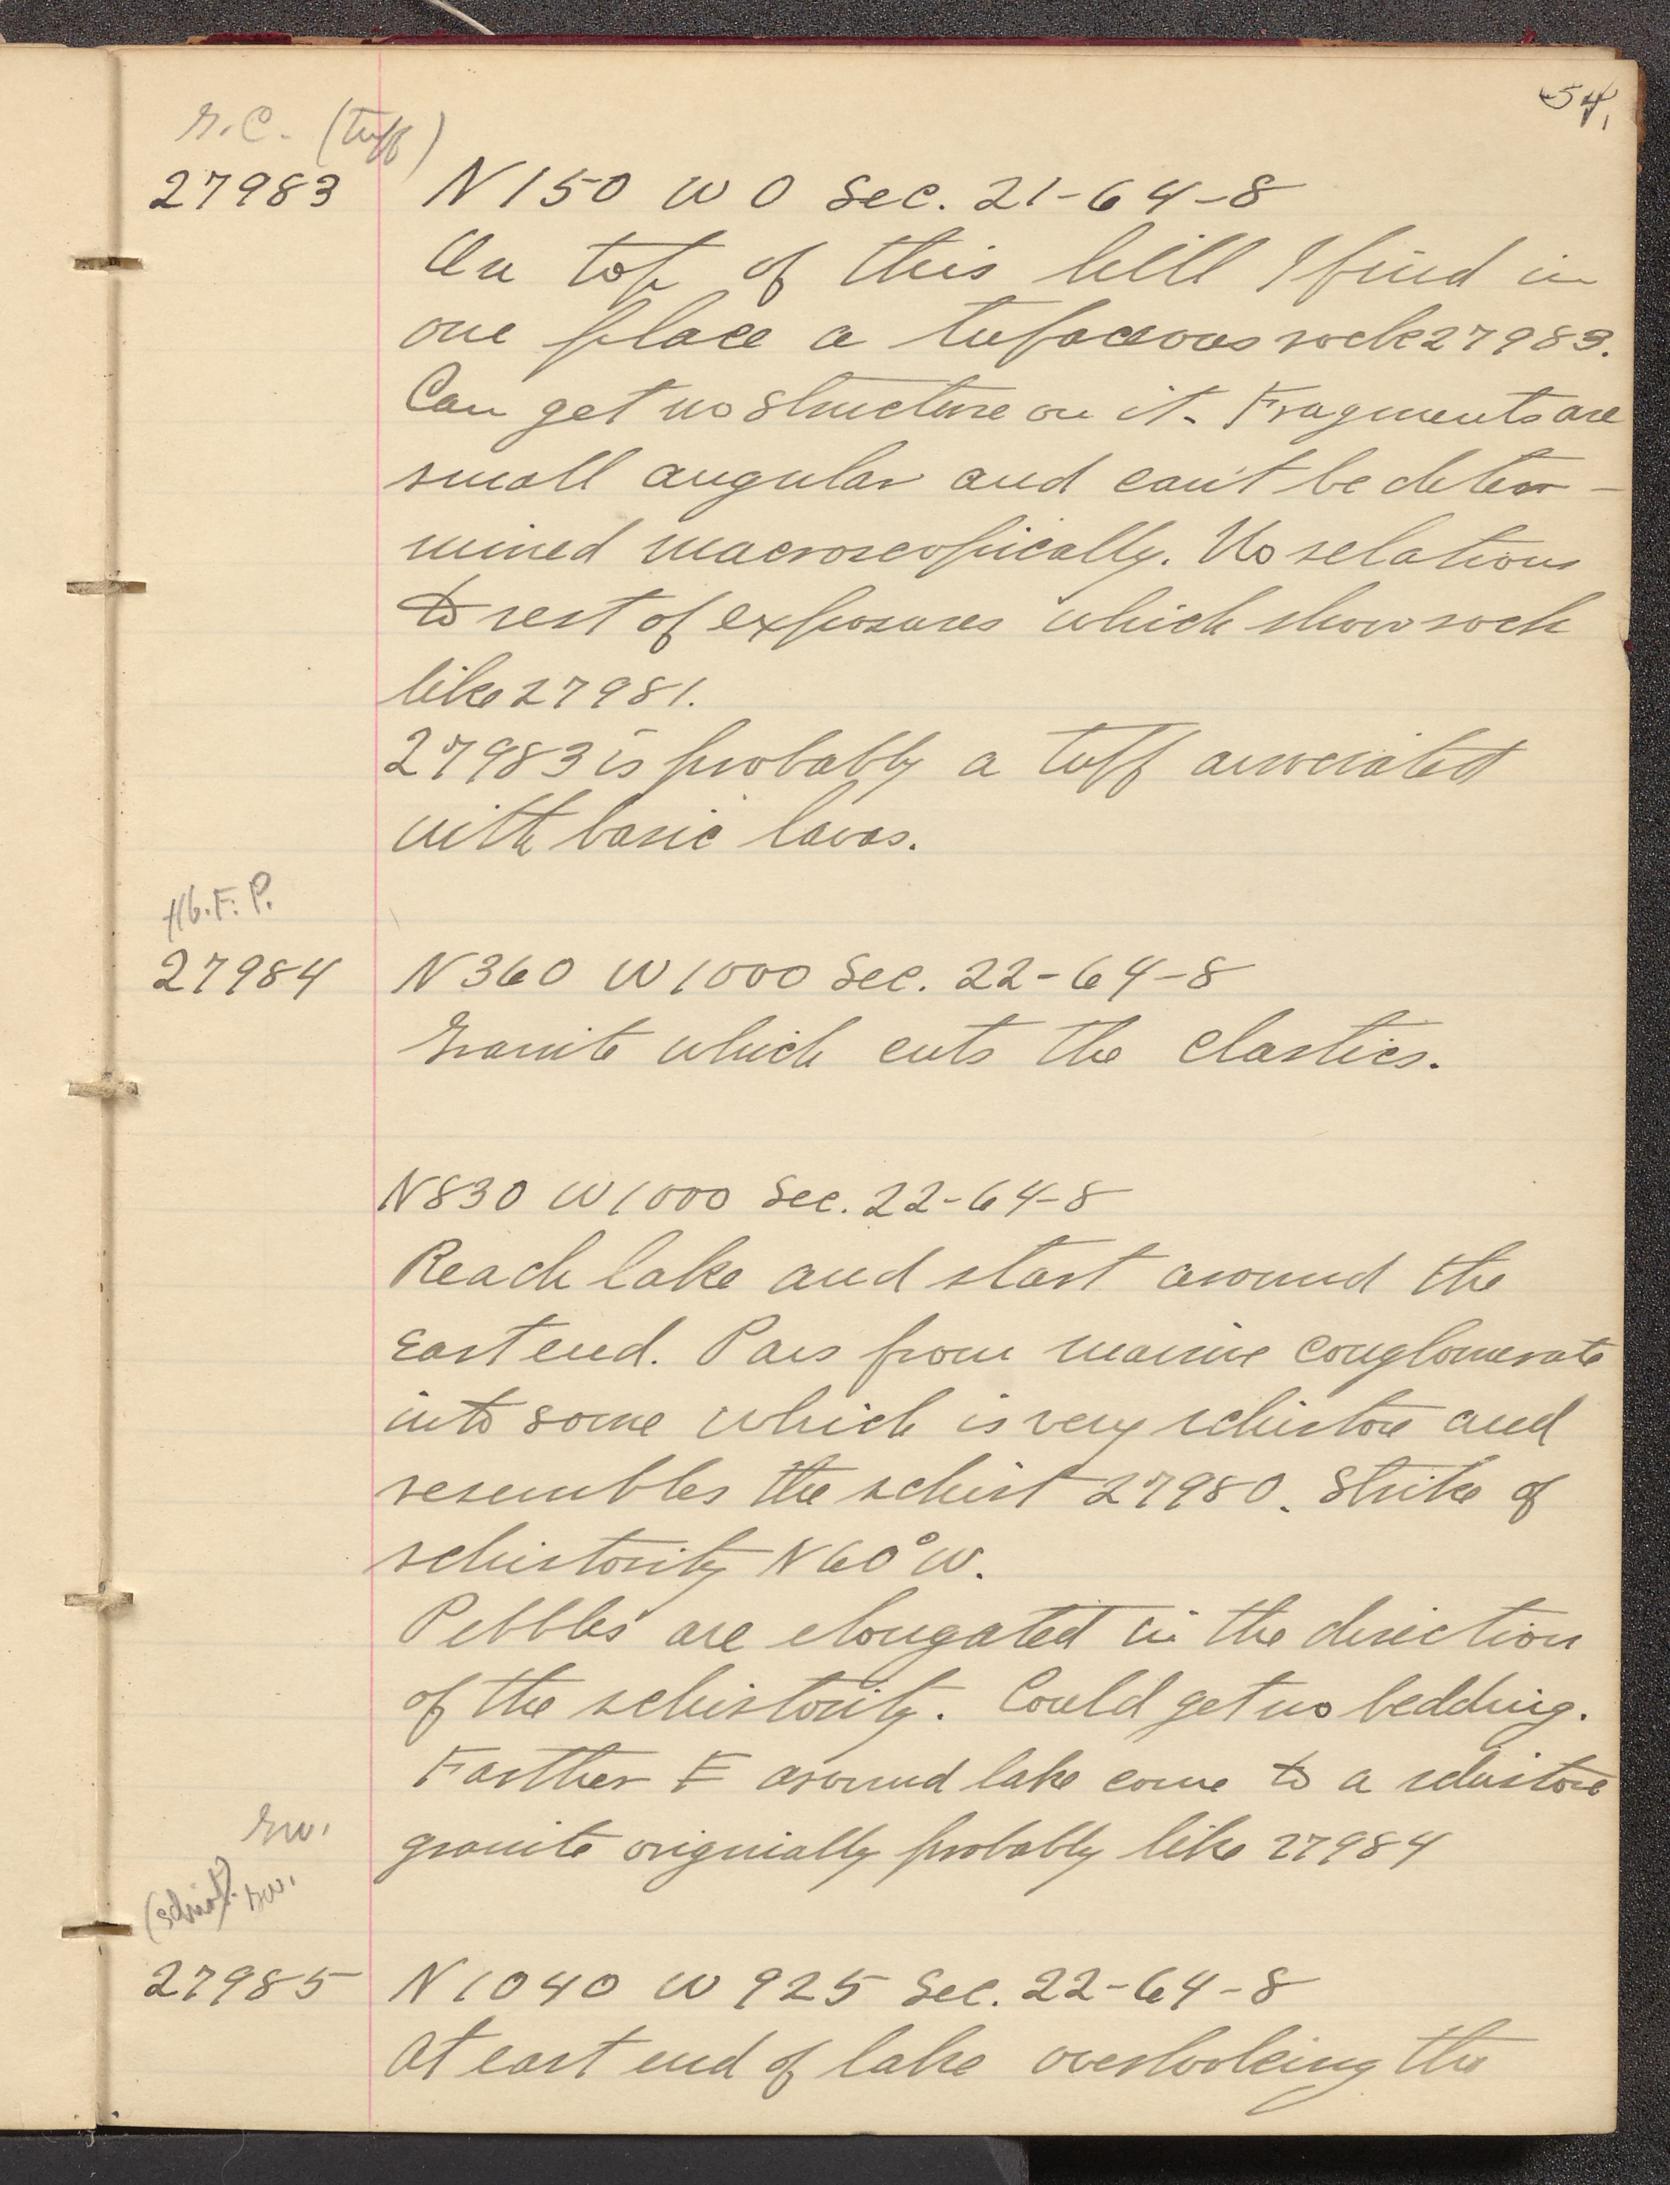 54,
G.C. (tuff)
27983 N150 W0 Sec. 21-64-8
On top of this hill I find in
one place a tufaceous rock 27983.
Can get no structure on it. Fragments are
small angular and can't be deter-
mined macroscopically. No relations
to rest of exposures which show rock
like 27981.
27983 is probably a tuff associated
with basic lavas.
Hb.F.P.
27984 N360 W1000 Sec. 22-64-8
Granite which cuts the clastics.
N830 W1000 Sec. 22-64-8
Reach lake and start around the
East end. Pass from massive conglomerate
into some which is very schistose and
resembles the schist 27980. Strike of
schistosity N60°W.
Pebbles are elongated in the direction
of the schistosity. Could get no bedding.
Farther E around lake come to a schistose
granite originially probably like 27984
Gw.
(schist). Gw.
27985 N1040 W925 Sec. 22-64-8
At east end of lake overlooking the